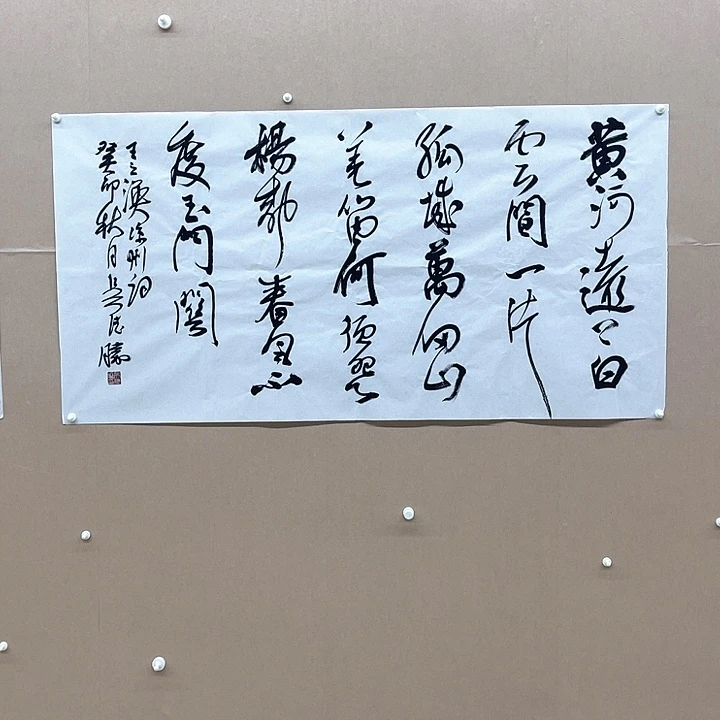 黄河遠上白
雲間一片
孤城萬仞山
羌笛何須怨
楊柳春風不
度玉門關
王之渙涼州詞
癸卯秋月吳